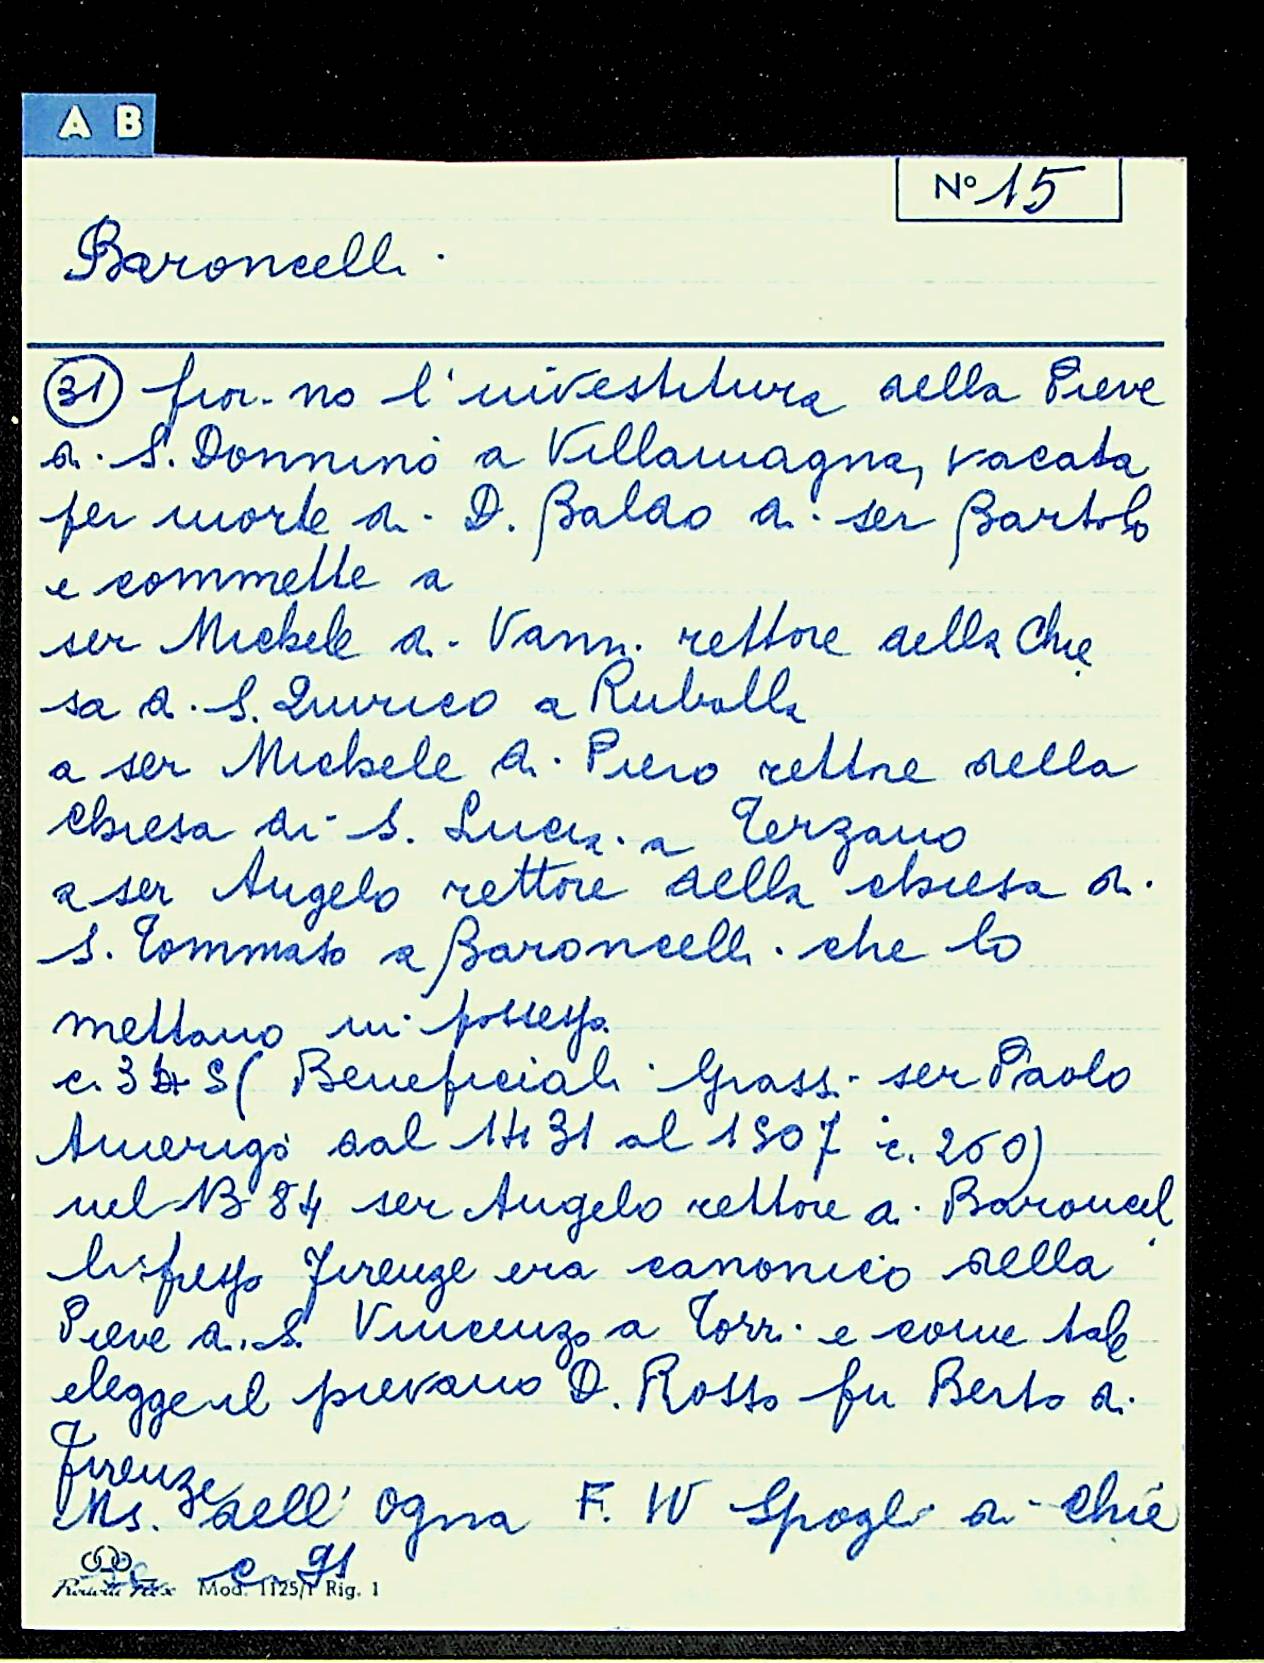 A B
N° 15
Baroncelli.
31 fior-no l'investitura della Pieve
di S. Donnino a Villamagna, vacata
per morte di D. Baldo di ser Bartolo
e commette a
ser Michele di Vanni rettore della Chie
sa di S. Quirico a Ruballa
a ser Michele di Piero rettore della
chiesa di S. Lucia a Terzano
a ser Angelo rettore della chiesa di
S. Tommaso a Baroncelli che lo
mettano in possesso
Beneficiali Grass. ser Paolo
Amerigi dal 1431 al 1507 c. 260)
nel 1384 ser Angelo rettore a Baroncel
li presso Firenze era canonico della
Pieve di S. Vincenzo a Torri e come tale
elegge il pievano D. Rosso fu Berto di
Firenze
Ms. dell' Ogna F. W Spogli di Chie
c. 91
Mod. 1125/1 Rig. 1